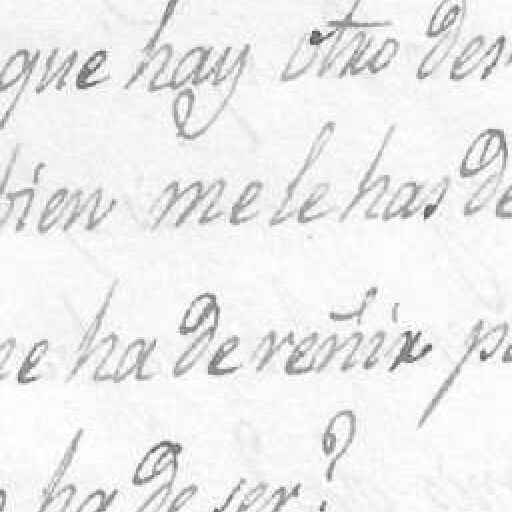 que hay otro des
bien me le has de
ne ha de reñir p
ha de ser?